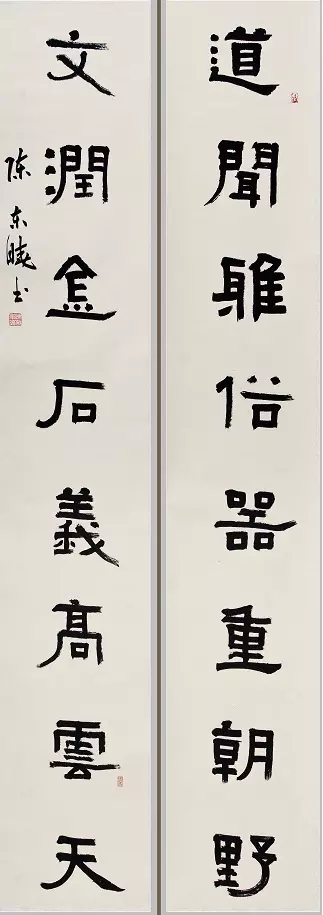 道聞雅俗器重朝野
文潤金石義高雲天
陈东晓书